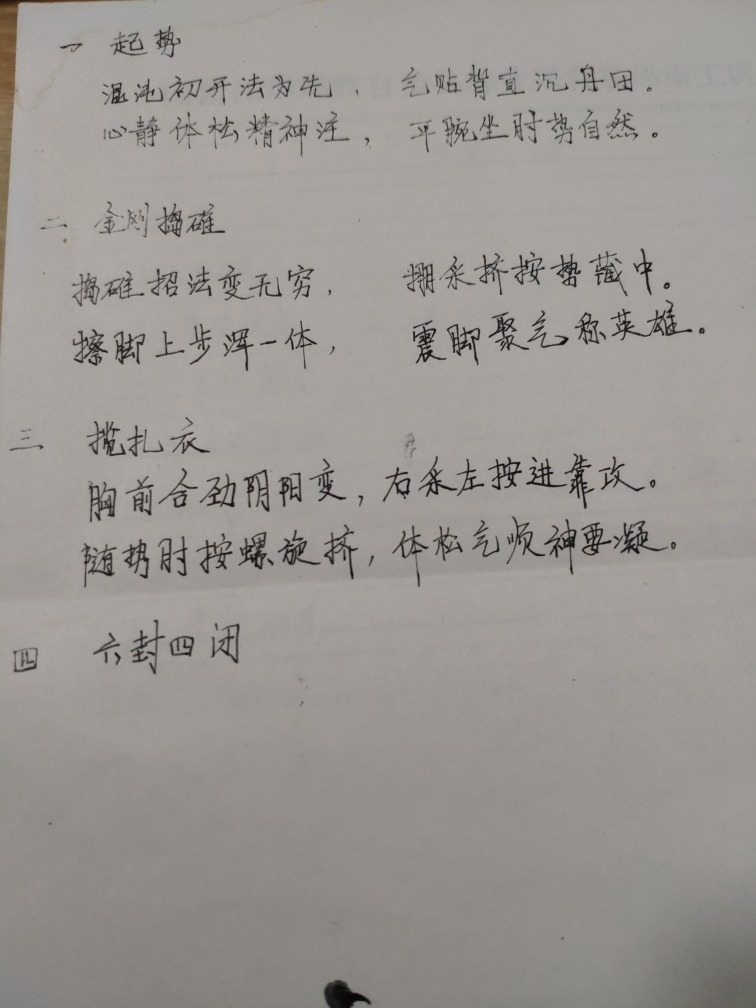 一 起势
混沌初开法为先，气贴背直沉丹田。
心静体松精神注，平腕坐肘势自然。
二 金刚捣碓
捣碓招法变无穷，掤采挤按势藏中。
擦脚上步浑一体，震脚聚气称英雄。
三 揽扎衣
胸前合劲阴阳变，右采左按进靠攻。
随势肘按螺旋挤，体松气顺神要凝。
四 六封四闭